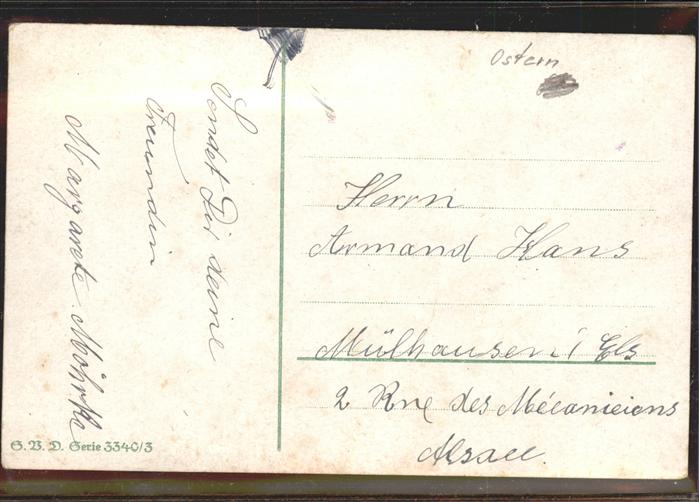 Ostern
Sendet Dir deine
Freundin
Margarete Möhrke
Herrn
Armand Hans
Mülhausen i/ Els
2 Rue des Mécaniciens
Alsace.
S. V. D. Serie 3340/3